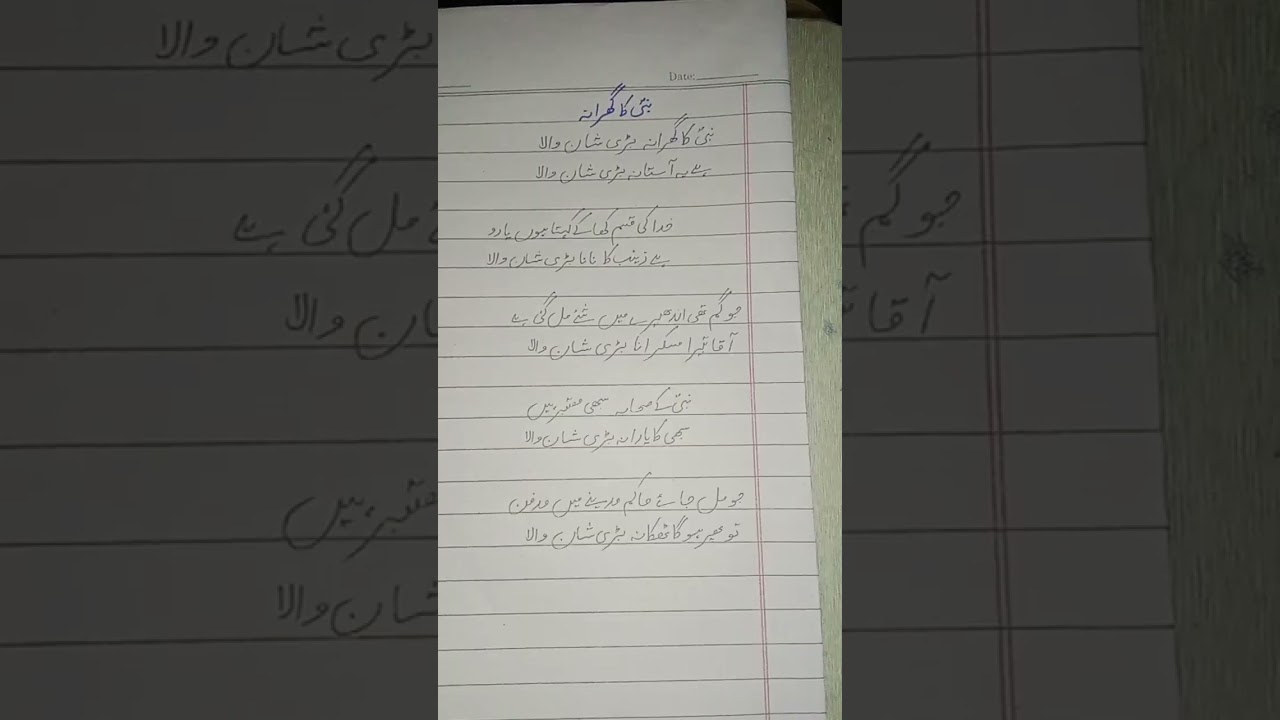 Date:
نبیؐ کا گھرانہ
نبیؐ کا گھرانہ بڑی شان والا
ہے یہ آستانہ بڑی شان والا
خدا کی قسم کھا کے کہتا ہوں یارو
ہے زینب کا نانا بڑی شان والا
جو گم تھی اندھیرے میں شئے مل گئی ہے
آقا تیرا مسکرانا بڑی شان والا
نبیؐ کے صحابہ سبھی معتبر ہیں
سبھی کا یارانہ بڑی شان والا
جو مل جائے حاکم مدینے میں مدفن
تو پھر ہو گا ٹھکانہ بڑی شان والا